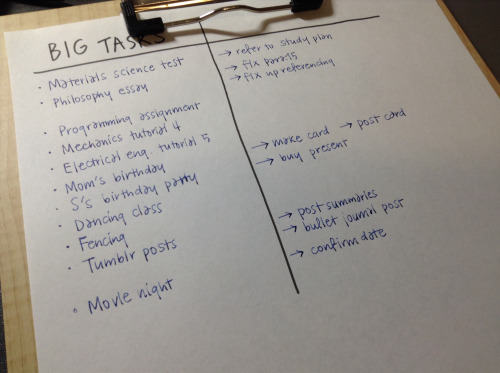 BIG TASKS
• Materials science test
• Philosophy essay
• Programming assignment
• Mechanics tutorial 4
• Electrical eng. tutorial 5
• Mom's birthday
• S's birthday party
• Dancing class
• Fencing
• Tumblr posts
• Movie night
→ refer to study plan
→ fix para 15
→ fix up referencing
→ make card → post card
→ buy present
→ post summaries
→ bullet journal post
→ confirm date